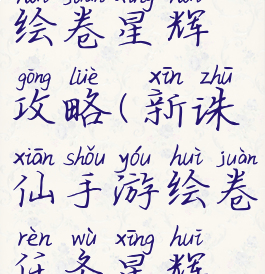 绘卷星辉
gōng lüè xīn zhū
攻略(新诛
xiān shǒu yóu huì juàn
仙手游绘卷
rèn wù xīng huī
任务星辉